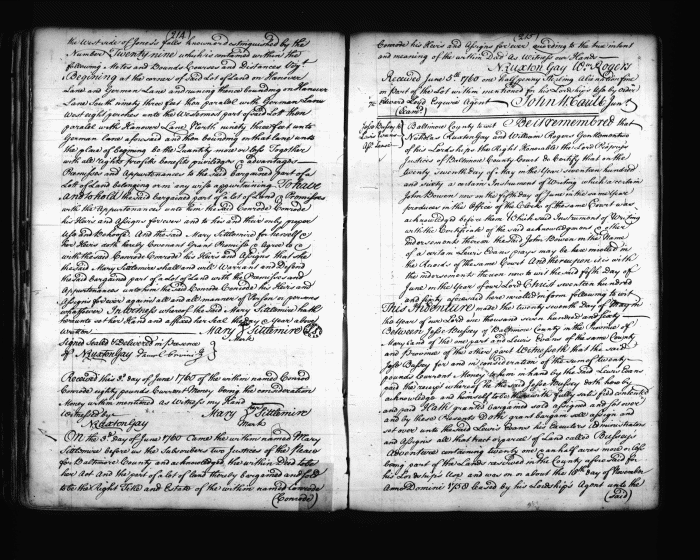 214
the West side of Jones's falls known and distinguished by the
Number Twenty nine which is contained within the
following Metes and Bounds Courses and Distances Viz.t
Beginning at the corner of said Lot of Land on Hanover
Lane and German Lane and running thence bounding on Hanover
Lane South ninety three feet then parallel with German Lane
West eight perches unto the Westermost part of said Lott then
parallel with Hanover Lane North ninety three feet unto
German Lane aforesaid and then bounding on that Lane unto
the place of Beginning to the Quantity more or less Together
with all rights profits benefits priviledges & advantages
Premises and Appurtenances to the said bargained part of a
Lott of Land belonging or in any wise appertaining. To have
and to hold the said bargained part of a Lot of Land & Premisses
with the Appurtenances unto him the said Conrode Conrode
his Heirs and Assigns forever and to his and their only proper
Use and Behoof. And the said Mary Sittlemire for herself &
her Heirs doth hereby Covenant Grant Promise & agree to &
with the said Conrode Conrode his Heirs and Assigns that she
the said Mary Sittlemire shall and will Warrant and Defend
the said bargained part of a Lot of Land with the Premisses and
Appurtenances unto him the said Conrode Conrode his Heirs and
Assigns forever against all and all manner of Person or persons
whatsoever In Witness whereof the said Mary Sittlemire hath
hereunto set her Hand and affixed her Seal the day & year above
Written
Mary Sittlemire
Mark
Signed Sealed & Delivered in presence
of N Ruxton Gay
Received this 3.d day of June 1760 of the within named Conrod
Conrode eighty pounds Current Money being the consideration
Money within mentioned as Witness my Hand
Witnessed by
Mary Sittlemire
N Ruxton Gay
Mark
On the 3.d day of June 1760 Came the within named Mary
Sittlemire before us the Subscribers two Justices of the Peace
for Baltimore County and acknowledged the within Deed to be
her Act And the said part of a Lot of Land thereby bargained and sold
to be the Right Title and Estate of the within named Conrode
(Conrode)
215
Conrode his Heirs and Assigns for ever according to the true intent
and meaning of the within Deed As Witness our Hands
N Ruxton Gay Wm Rogers
Received June 5th 1760 one half penny Sterling Alienation fine
in part of the Lot within mentioned for his Lordships use by order
of Edward Loyd Esquire Agent
John McCaill Junr
Baltimore County to wit Be it Remembered that
Nicholas Ruxton Gay and William Rogers Gentlemen two
of his Lordships the Right Honorable the Lord Proprys
Justices of Baltimore County Court do Certify that on the
twenty seventh day of May in the Year seventeen hundred
and sixty a certain Instrument of Writing which a certain
John Bowen now on the fifth day of June in the same year
produces in the Office of the Clerk of the same Court was
acknowledged before them Which said Instrument of Writing
with the Certificate of the said acknowledgment & other
endorsements thereon the said John Bowen in the Name
of a certain Lewis Evans prays may be here inrolled in
the Records of the same Court And thereupon it is with
the indorsements thereon now to wit the said fifth Day of
June in the Year of our Lord Christ seventeen hundred
and sixty aforesaid here inrolled in form following to wit
This Indenture made the twenty seventh Day of May in
the Year of our Lord one thousand seven hundred and sixty
Between Jesse Bussey of Baltimore County in the Province of
Mary Land of the one part and Lewis Evans of the same County
and Province of the other part Witnesseth that the said
Jesse Bussey for and in consideration of the sum of twenty
pounds Current Money to him in hand by the said Lewis Evans
and the receipt whereof he the said Jesse Bussey doth hereby
acknowledge and himself to be therewith fully satisfied contented
and paid Hath granted bargained sold assigned and set over
and by these Presents Doth grant bargain sell assign and
set over unto the said Lewis Evans his Executors Administrators
and Assigns all that tract or parcel of Land called Bussey's
Adventure containing twenty one and a half acres more or less
being part of the Land reserved in the County aforesaid for
his Lordships Use and was on or about the 10th day of November
Anno Domini 1758 leased by his Lordships Agent unto the
(said)